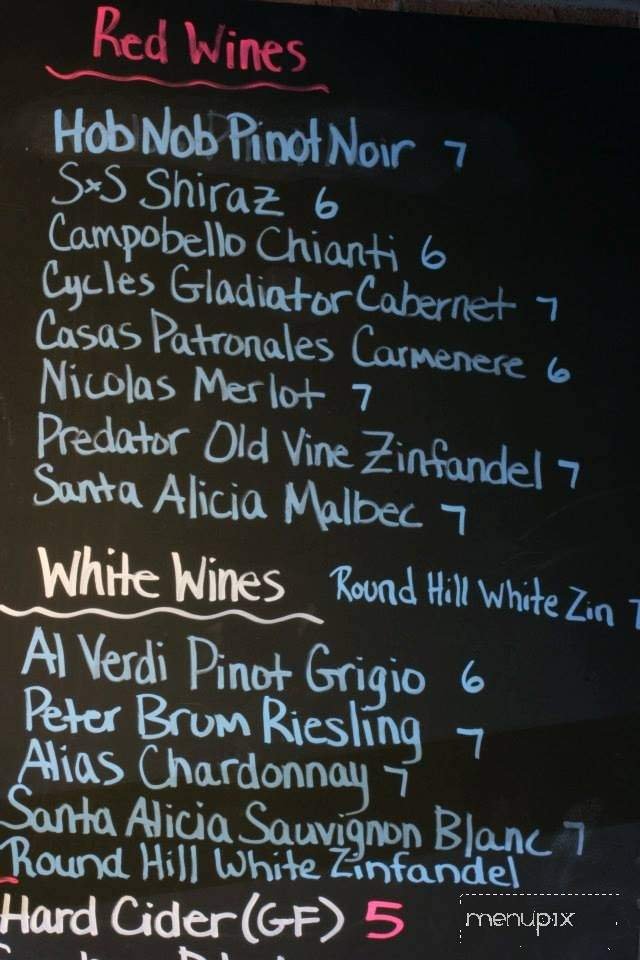 Red Wines
Hob Nob Pinot Noir 7
SxS Shiraz 6
Campobello Chianti 6
Cycles Gladiator Cabernet 7
Casas Patronales Carmenere 6
Nicolas Merlot 7
Predator Old Vine Zinfandel 7
Santa Alicia Malbec 7
White Wines Round Hill White Zin 7
Al Verdi Pinot Grigio 6
Peter Brum Riesling 7
Alias Chardonnay 7
Santa Alicia Sauvignon Blanc 7
Round Hill White Zinfandel
Hard Cider (GF) 5
menupix